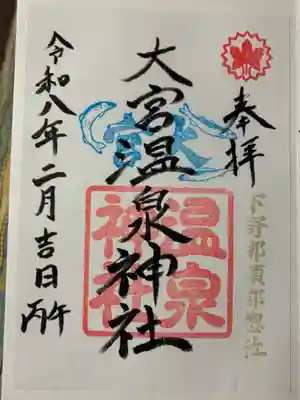 奉拝
下野那須郡惣社
大宮温泉神社
温泉
神社
令和八年二月吉日
丙午